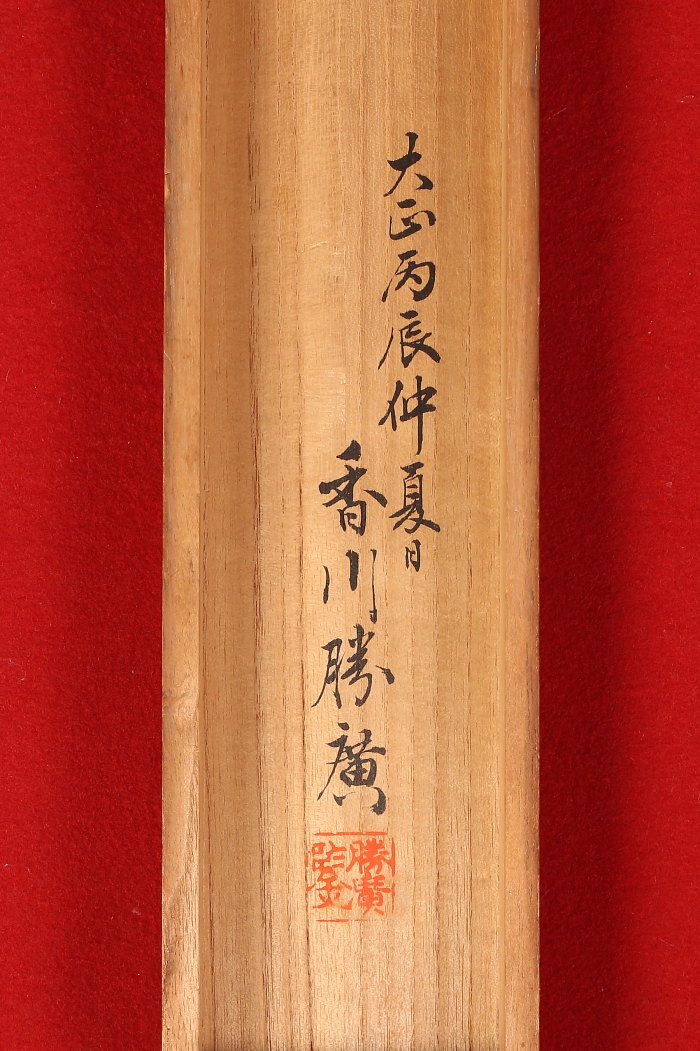 大正丙辰仲夏日
香川勝廣
勝廣
鑒